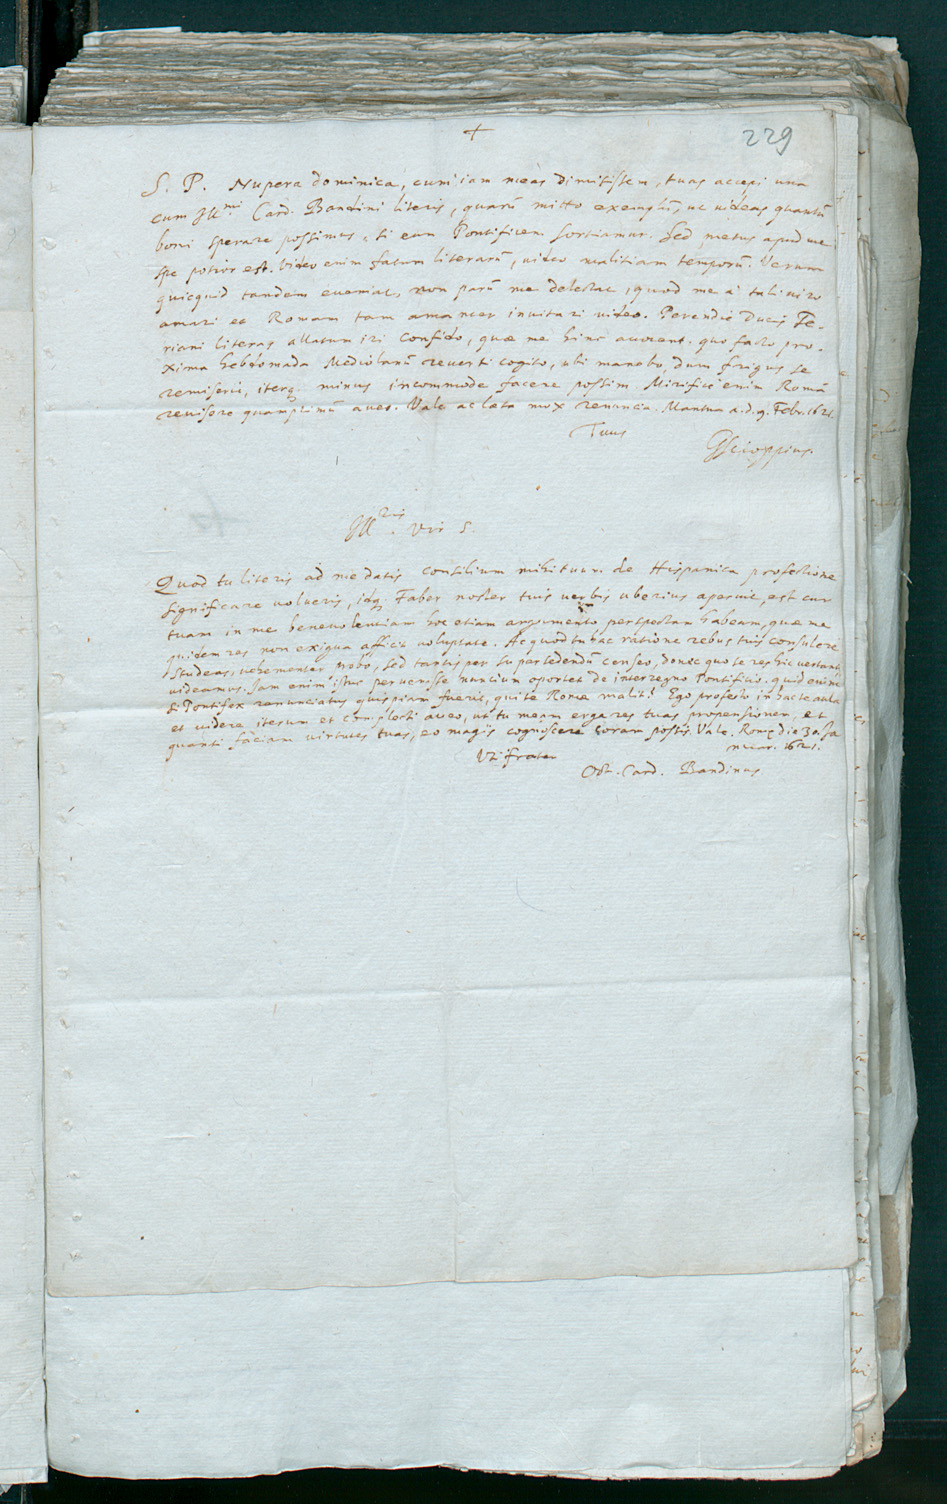 +
229
S. P. Nupera dominica, cum iam meas dimisissem, tuas accepi una
cum Ill.mi Card. Bandini literis, quarū mitto exemplū, ut videas quantū
boni sperare possimus, si eum Pontificem sortiamur. Sed metus apud me
spe potior est. Video enim fatum literarū, video malitiam temporū. Verum
quicquid tandem eveniat, non parū me delectat, quod me a tali viro
amari et Romam tam amanter invitari video. Perendie Ducis Fe-
riani literas allatum iri confido, quæ me hinc avocent. quo facto pro-
xima hebdomada Mediolanū reverti cogito, ubi manebo, dum frigus se
remiserit, iterq; minus incommode facere possim. Mirifice enim Romā
revisere quamprimū aveo. Vale ac læta mox renuncia. Mantua a. d. 9. Febr. 1621.
Tuus
GScioppius.
Ill.ris Vir S.
Quod tu literis ad me datis consilium mihi tuum de Hispanica profectione
significare volueris, idq; Faber noster tuis verbis uberius aperuit, est cur
tuam in me benevolentiam hoc etiam argumento perspectam habeam, quæ me
quidem res non exigua afficit voluptate. Ac quod tu hac ratione rebus tuis consulere
studeas, vehementer probo, sed tantisper supersedendū censeo, donec quo se res hic vertant,
videamus. Iam enim istuc pervenisse nuncium oportet de interregno Pontificio. quid enim
si Pontifex renunciatus quispiam fuerit, qui te Romæ malit? Ego profecto in hac te aula
et videre iterum et complecti aveo, ut tu meam erga res tuas propensionem, et
quanti faciam virtutes tuas, eo magis cognoscere coram possis. Vale. Romę die 30. Ja
nuar. 1621.
Vti frater
Oct. Card. Bandinus